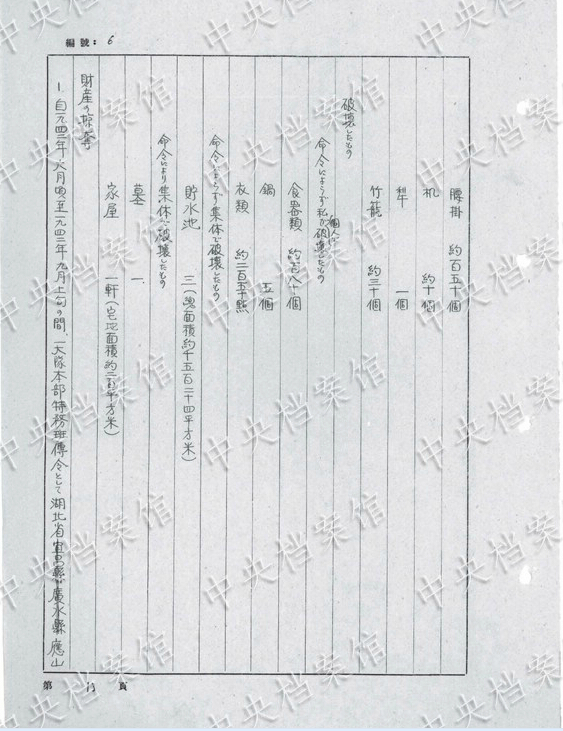 編號: 6
腰掛 約百五十個
机 約十個
犁 一個
竹籠 約三十個
破壊したもの
命令によらず私個人が破壊したもの
食器類 約百八十個
鍋 五個
衣類 約二百五十點
命令によらず集体で破壊したもの
貯水池 三(總面積約千五百二十四平方米)
命令により集体で破壊したもの
墓 一
家屋 一軒(宅地面積約二百平方米)
財産の掠奪
1. 自一九四二年六月頃至一九四三年九月上旬の間、大隊本部特務班傳令として湖北省宜昌縣廣水縣應山
第 頁
中央档案馆